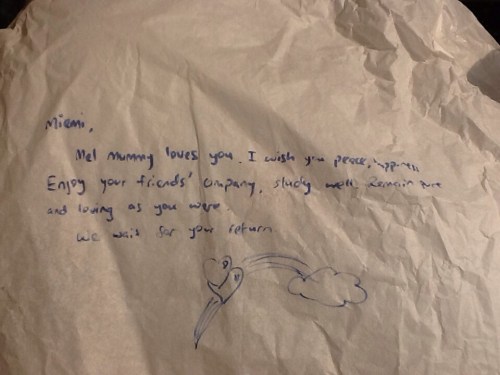 Miemi,
Mel mummy loves you. I wish you peace, happiness
Enjoy your friends' company, study well. Remain pure
and loving as you were.
We wait for your return